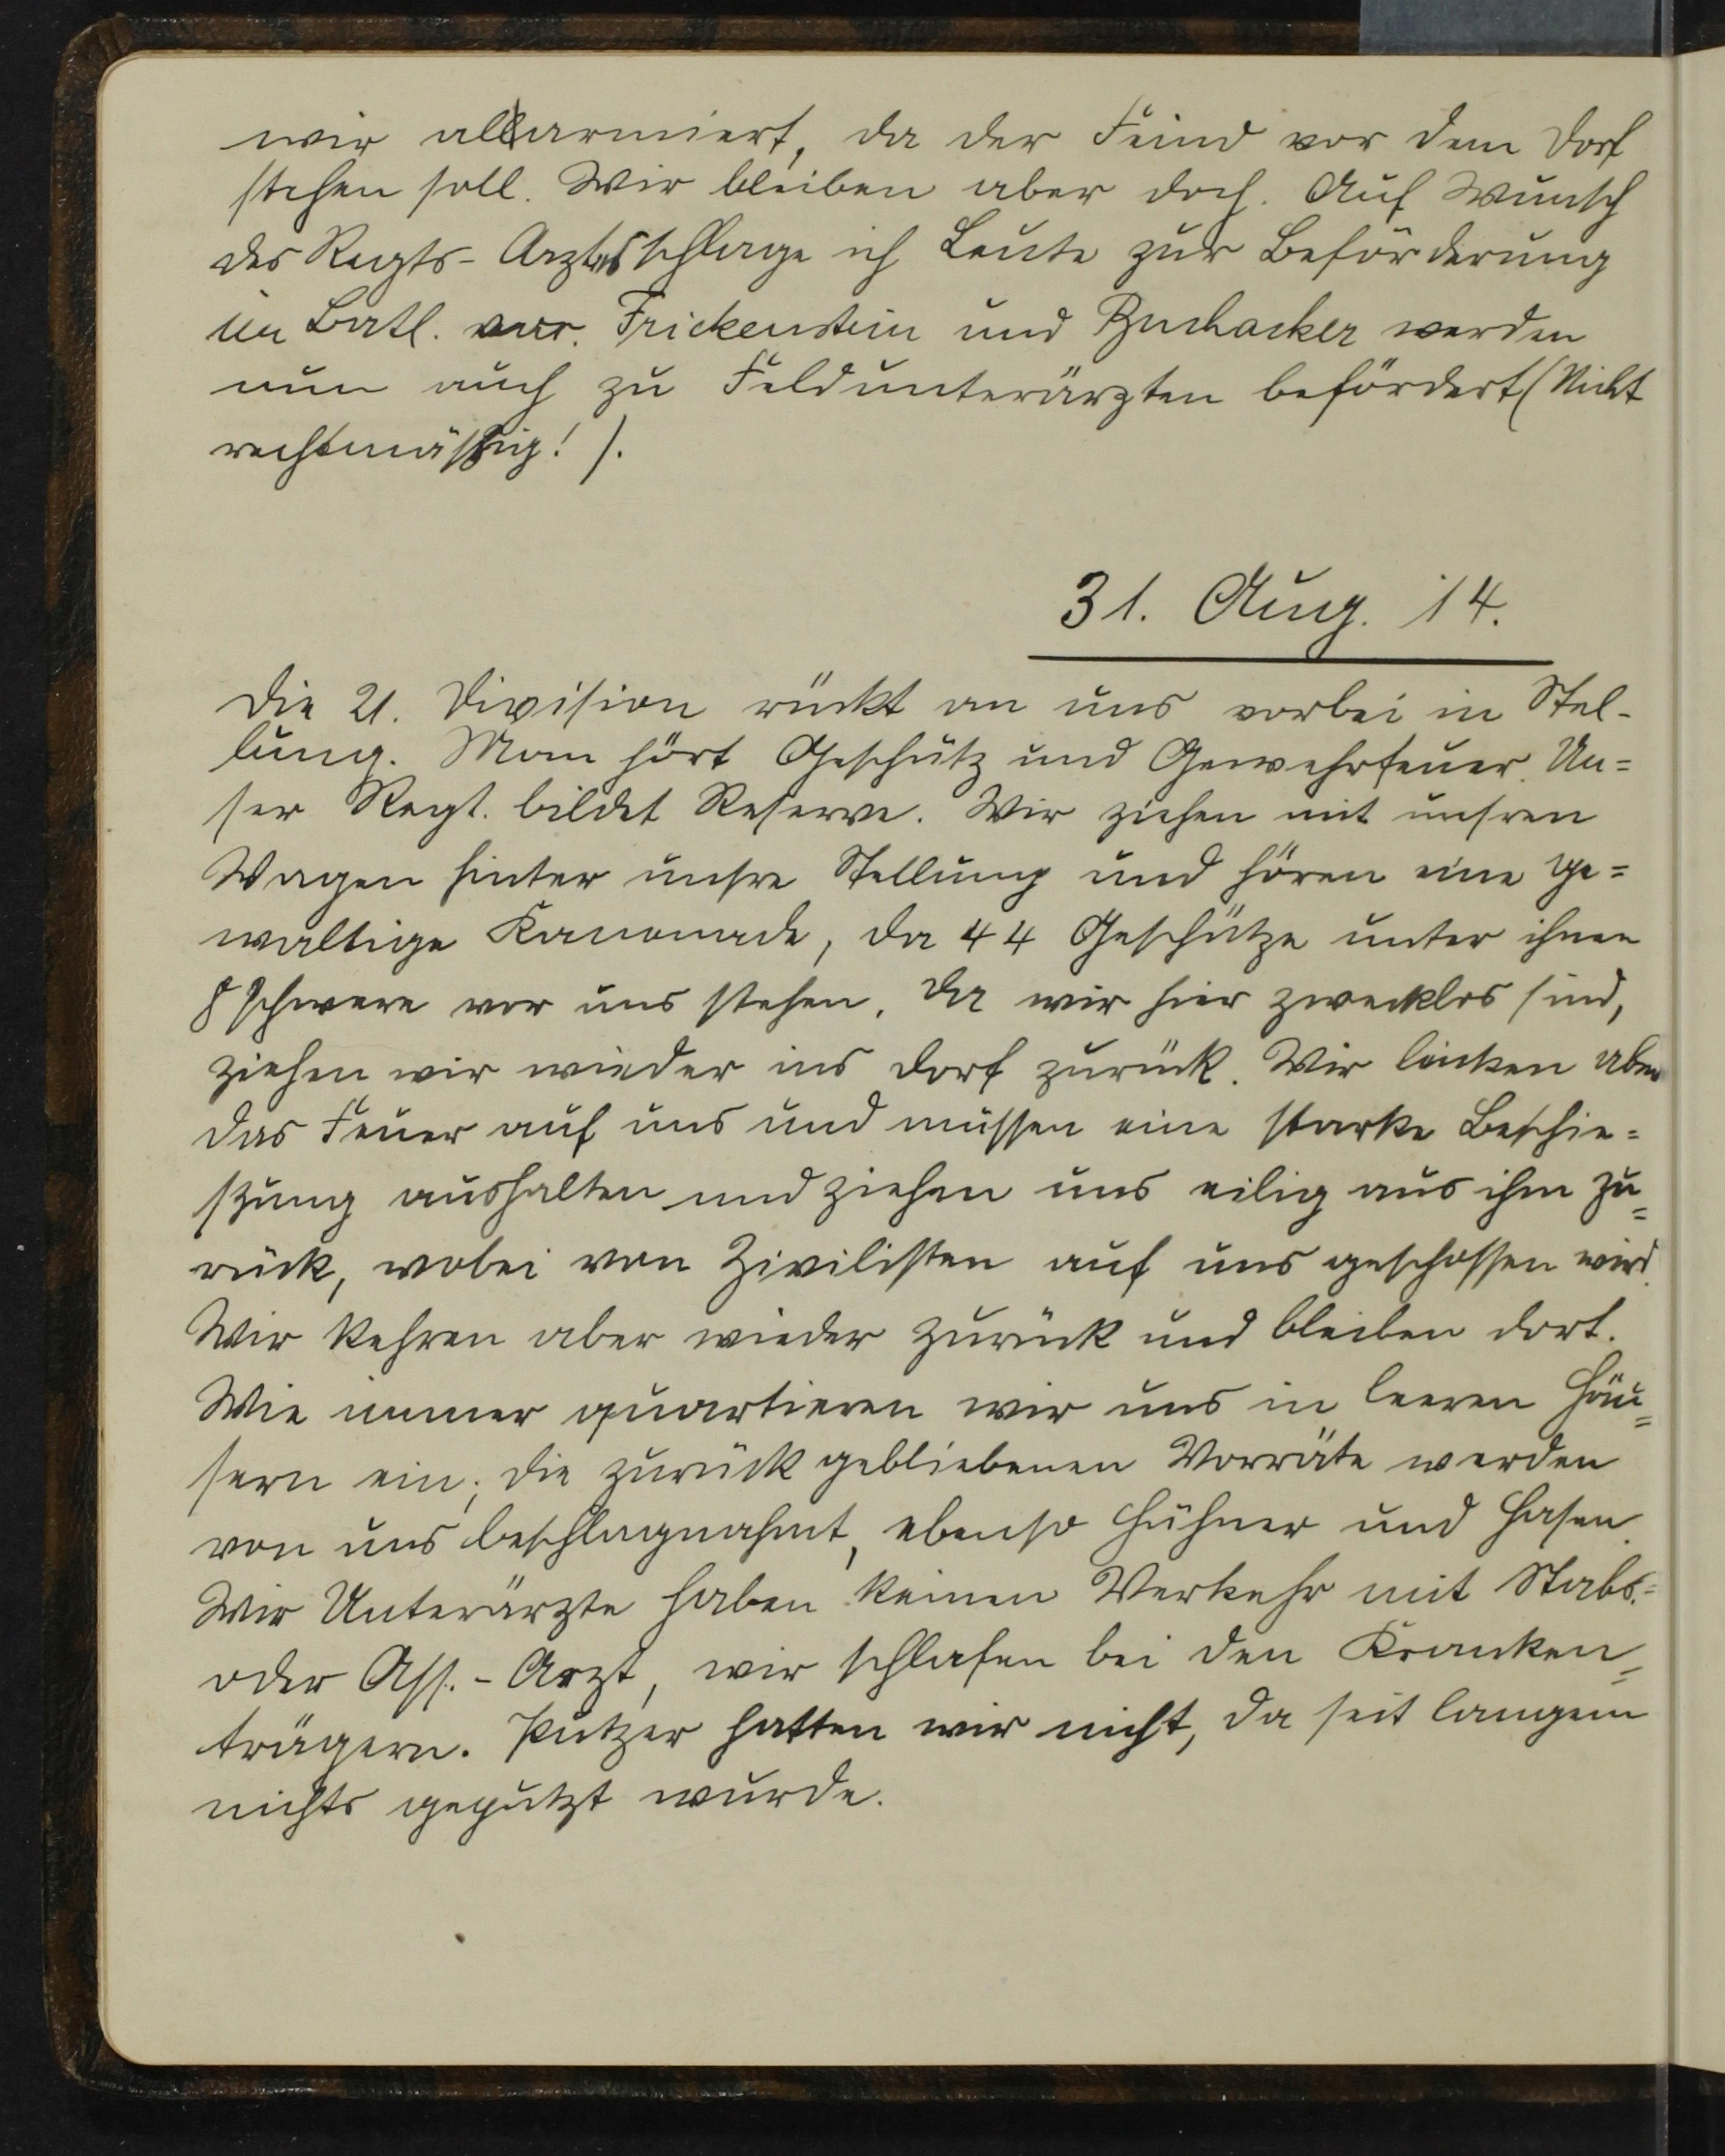 wir allarmiert, da der Feind vor dem Dorf
stehen soll. Wir bleiben aber doch. Auf Wunsch
des Regts-Arztes schlage ich Leute zur Beförderung
im Batl. vor. Frickenstein und Buchacker werden
nun auch zu Feldunterärzten befördert (Nicht
rechtmäßig!).
31. Aug. 14.
Die 21. Division rückt an uns vorbei in Stel-
lung. Man hört Geschütz und Gewehrfeuer. Un=
ser Regt. bildet Reserve. Wir ziehen mit unsren
Wagen hinter unsre Stellung und hören eine ge=
waltige Kanonade, da 44 Geschütze unter ihnen
8 schwere vor uns stehen. Da wir hier zwecklos sind,
ziehen wir wieder ins Dorf zurück. Wir lenken aber
das Feuer auf uns und müssen eine starke Beschie=
ßung aushalten und ziehen uns eilig aus ihm zu=
rück, wobei von Zivilisten auf uns geschossen wird.
Wir kehren aber wieder zurück und bleiben dort.
Wie immer quartieren wir uns in leeren Häu=
sern ein; die zurückgebliebenen Vorräte werden
von uns beschlagnahmt, ebenso Hühner und Hasen.
Wir Unterärzte haben keinen Verkehr mit Stabs.=
oder Ass.-Arzt, wir schlafen bei den Kranken=
trägern. Putzer hatten wir nicht, da seit langem
nichts geputzt wurde.